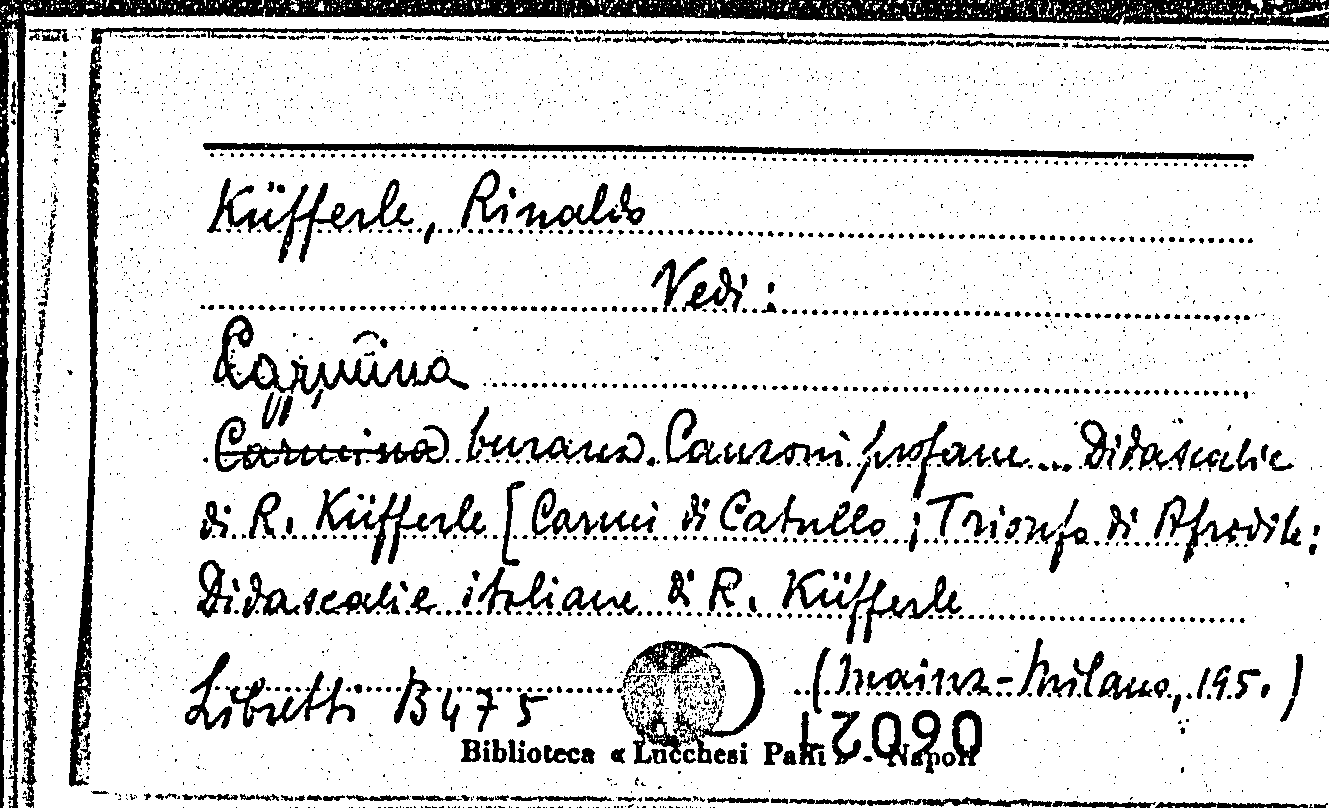 Küfferle, Rinaldo
Vedi:
Carmina
Carmina burana. Canzoni profane... Didascalie
di R. Küfferle [Carmi di Catullo; Trionfo di Afrodite:
Didascalie italiane di R. Küfferle
Libretti B475 (Mainz-Milano, 195.)
06021
Biblioteca « Lucchesi Palli » - Napoli